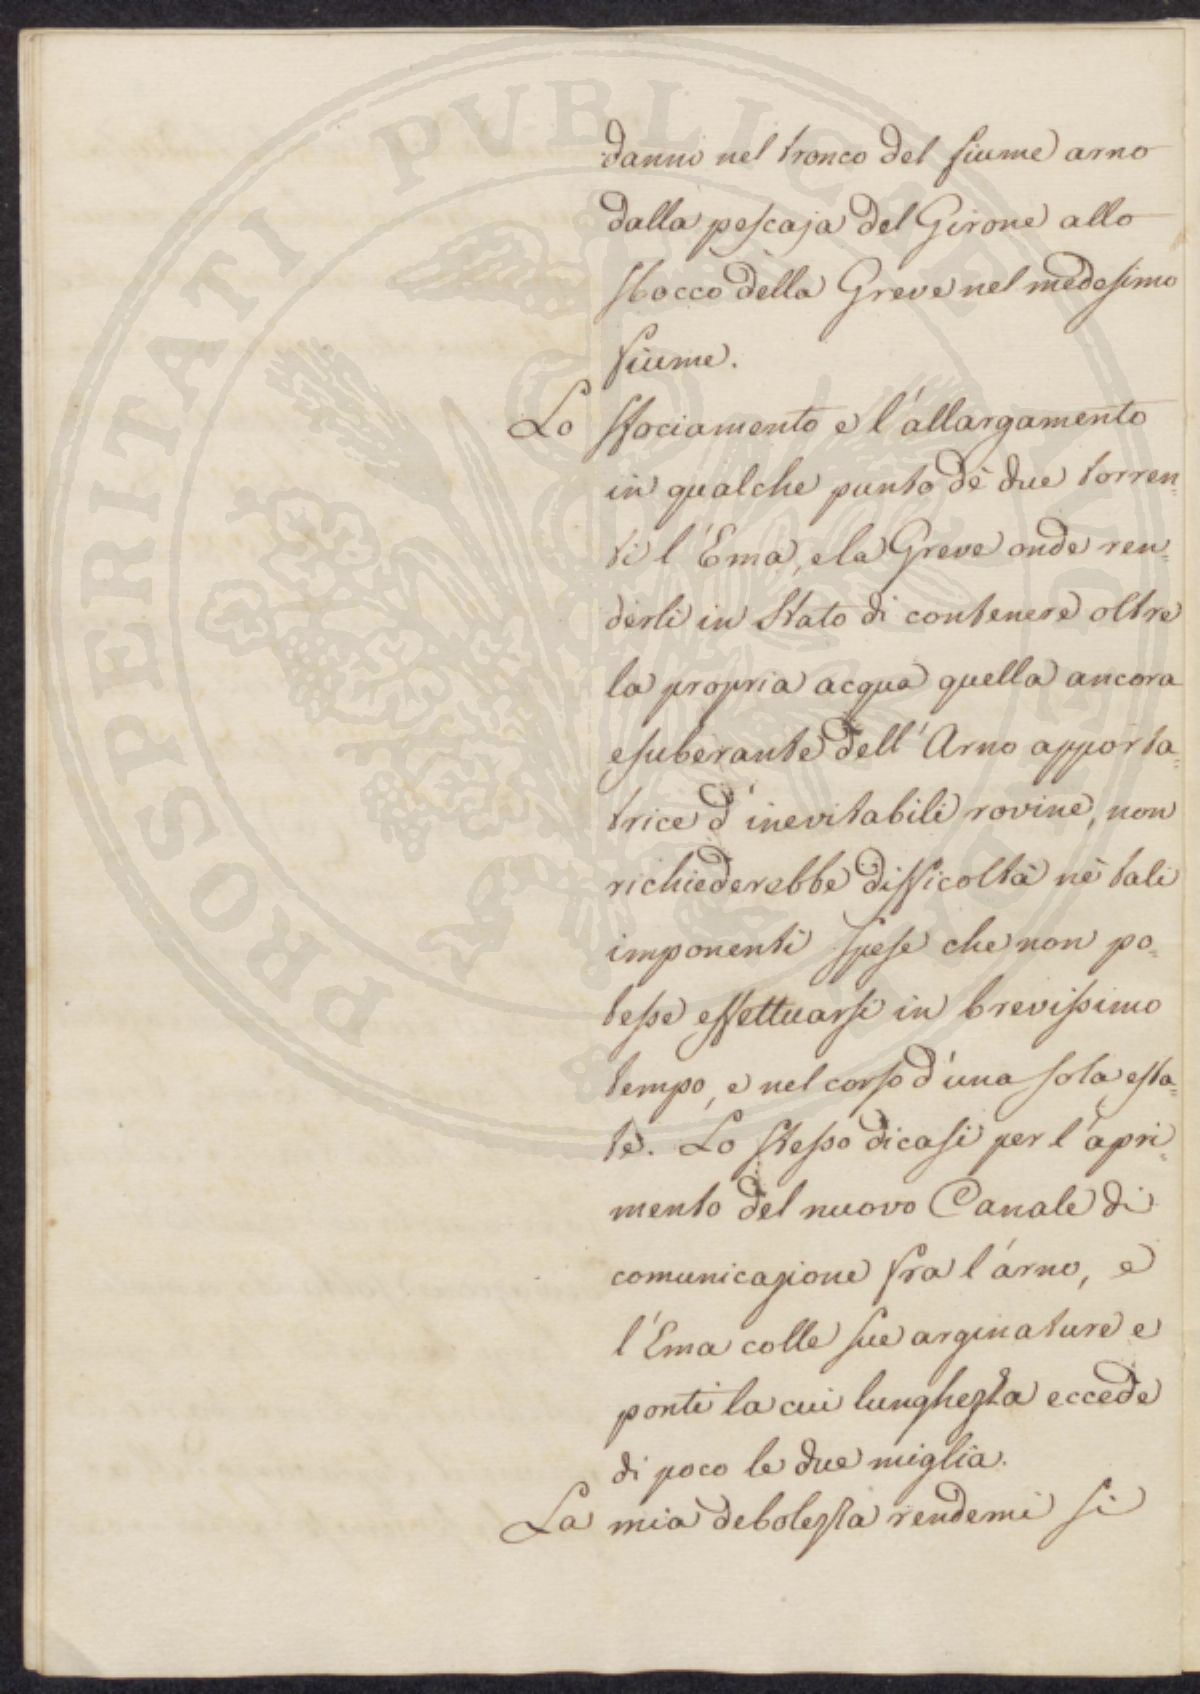 PROSPERITATI PUBLICAE AUGENDAE
danni nel tronco del fiume arno
dalla pescaja del Girone allo
sbocco della Greve nel medesimo
fiume.
Lo sfociamento e l'allargamento
in qualche punto dè due torren=
ti l'Ema, e la Greve onde ren=
derli in stato di contenere oltre
la propria acqua quella ancora
esuberante dell'Arno apporta=
trice d'inevitabili rovine, non
richiederebbe difficoltà nè tali
imponenti spese che non po=
tesse effettuarsi in brevissimo
tempo, e nel corso d'una sola esta=
te. Lo stesso dicasi per l'apri=
mento del nuovo Canale di
comunicazione fra l'arno, e
l'Ema colle sue arginature e
ponti la cui lunghezza eccede
di poco le due miglia.
La mia debolezza rendemi si